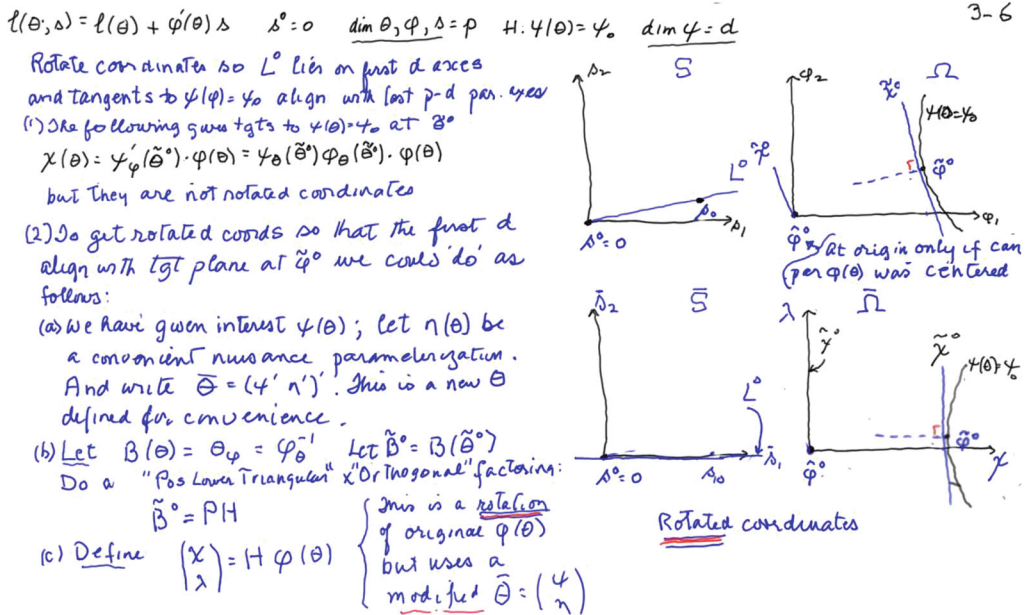 3-6
ℓ(θ; s) = ℓ(θ) + φ'(θ) s   s⁰ = 0   dim θ, φ, s = p   H: ψ(θ) = ψ₀   dim ψ = d
Rotate coordinates so L⁰ lies on first d axes
and tangents to ψ(φ) = ψ₀ align with last p-d par. axes
(1) The following gives tgts to ψ(θ) = ψ₀ at θ̃⁰
χ(θ) = ψ'_φ(θ̃⁰)·φ(θ) = ψ_θ(θ̃⁰) φ_θ(θ̃⁰)·φ(θ)
but they are not rotated coordinates
(2) To get rotated coords so that the first d
align with tgt plane at φ̃⁰ we could 'do' as
follows:
(a) We have given interest ψ(θ); let η(θ) be
a convenient nuisance parameterization.
And write θ̄ = (ψ' η')'. This is a new θ
defined for convenience.
(b) Let B(θ) = θ_φ = φ_θ⁻¹   Let B̃⁰ = B(θ̃⁰)
Do a "Pos Lower Triangular" x "Orthogonal" factoring:
B̃⁰ = PH
(c) Define (χ λ) = H φ(θ)
This is a rotation
of original φ(θ)
but uses a
modified θ̄ = (ψ η)
s₂ S
L⁰
s₀
s₁
s⁰ = 0
φ₂ Ω
χ̃⁰
ψ(θ) = ψ₀
χ̂⁰
φ̃⁰
φ₁
φ̂⁰
at origin only if can
par φ(θ) was centered
s̄₂ S̄
L⁰
s̄₁
s⁰ = 0 s₁₀
λ Ω̄
χ̂⁰
χ̃⁰
ψ(θ) = ψ₀
φ̃⁰
χ
φ̂⁰
Rotated coordinates